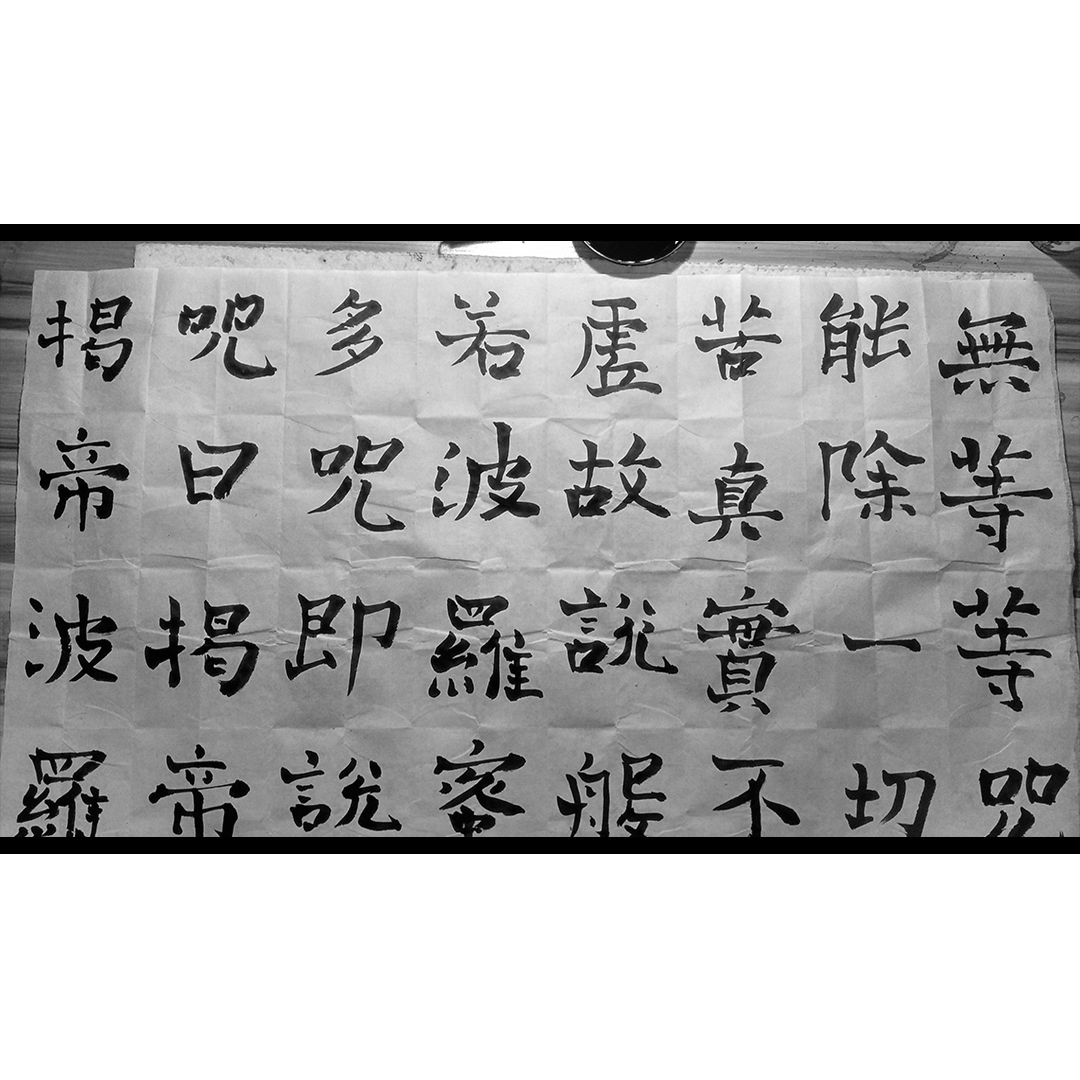 無等等咒
能除一切
苦真實不
虛故說般
若波羅蜜
多咒即說
咒曰揭帝
揭帝波羅